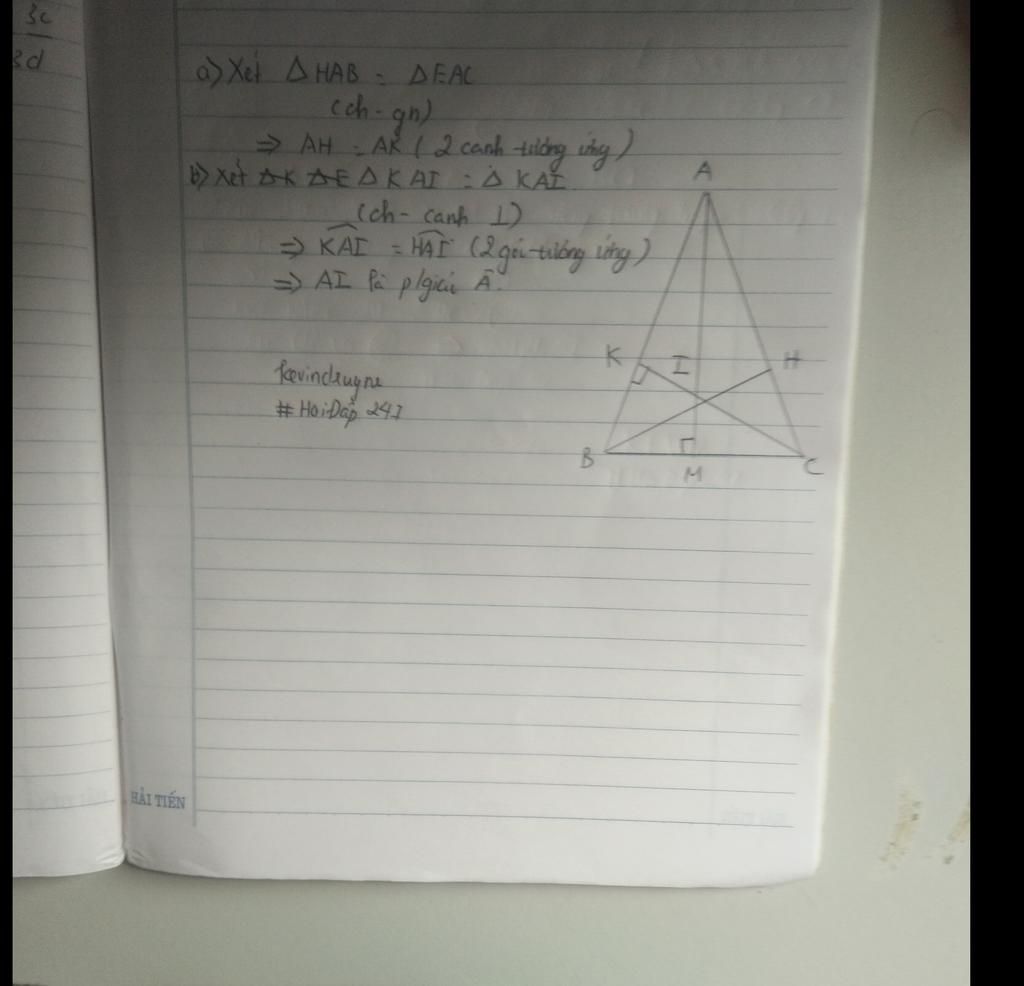 3c
3d
a) Xét Δ HAB = ΔEAC
(ch - gn)
=> AH = AK ( 2 cạnh tương ứng )
b) Xét ΔK ΔE Δ KAI = Δ KAI
(ch - cạnh ⊥)
=> KAI = HAI (2 góc tương ứng )
=> AI là p/giác Â.
A
K
I
H
B
M
C
#HoiĐáp 247
HẢI TIẾN